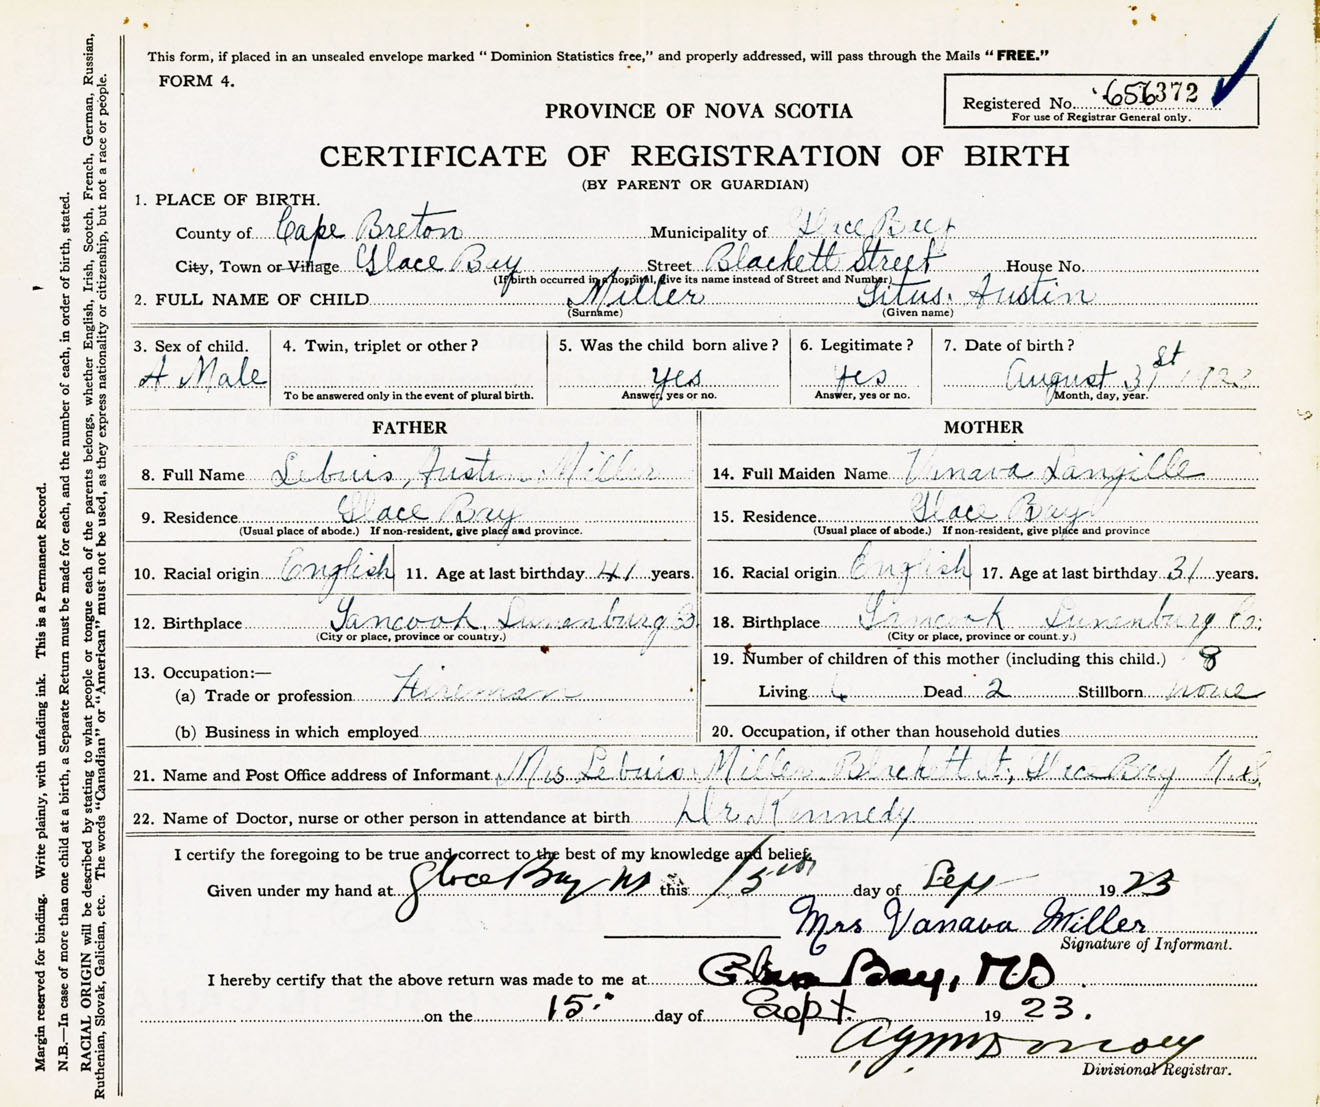 This form, if placed in an unsealed envelope marked "Dominion Statistics free," and properly addressed, will pass through the Mails "FREE."
FORM 4.
Registered No. 656372
For use of Registrar General only.
PROVINCE OF NOVA SCOTIA
CERTIFICATE OF REGISTRATION OF BIRTH
(BY PARENT OR GUARDIAN)
1. PLACE OF BIRTH.
County of Cape Breton Municipality of Glace Bay
City, Town or Village Glace Bay Street Blackett Street House No.
(If birth occurred in a hospital, give its name instead of Street and Number)
2. FULL NAME OF CHILD Miller Titus. Austin
(Surname) (Given name)
3. Sex of child. 4. Twin, triplet or other? 5. Was the child born alive? 6. Legitimate? 7. Date of birth?
A Male yes yes August 31st
To be answered only in the event of plural birth. Answer, yes or no. Answer, yes or no. Month, day, year.
FATHER MOTHER
8. Full Name Lebuis Austin Miller 14. Full Maiden Name Vanava Langille
9. Residence Glace Bay 15. Residence Glace Bay
(Usual place of abode.) If non-resident, give place and province. (Usual place of abode.) If non-resident, give place and province
10. Racial origin English 11. Age at last birthday 41 years. 16. Racial origin English 17. Age at last birthday 31 years.
12. Birthplace Tancook Lunenburg Co 18. Birthplace Tancook Lunenburg Co.
(City or place, province or country.) (City or place, province or country.)
13. Occupation:— 19. Number of children of this mother (including this child.) 8
(a) Trade or profession Fireman Living 6 Dead 2 Stillborn none
(b) Business in which employed 20. Occupation, if other than household duties
21. Name and Post Office address of Informant Mrs Lebuis Miller Blackett St, Glace Bay N.S.
22. Name of Doctor, nurse or other person in attendance at birth Dr Kennedy
I certify the foregoing to be true and correct to the best of my knowledge and belief.
Given under my hand at Glace Bay NS this 15 day of Sept 1923
Mrs Vanava Miller
Signature of Informant.
I hereby certify that the above return was made to me at Glace Bay, NS
on the 15. day of Sept. 1923.
Divisional Registrar.
Margin reserved for binding. Write plainly, with unfading ink. This is a Permanent Record.
N.B.—In case of more than one child at a birth, a Separate Return must be made for each, and the number of each, in order of birth, stated.
RACIAL ORIGIN will be described by stating to what people or tongue each of the parents belongs, whether English, Irish, Scotch, French, German, Russian,
Ruthenian, Slovak, Galician, etc. The words "Canadian" or "American" must not be used, as they express nationality or citizenship, but not a race or people.